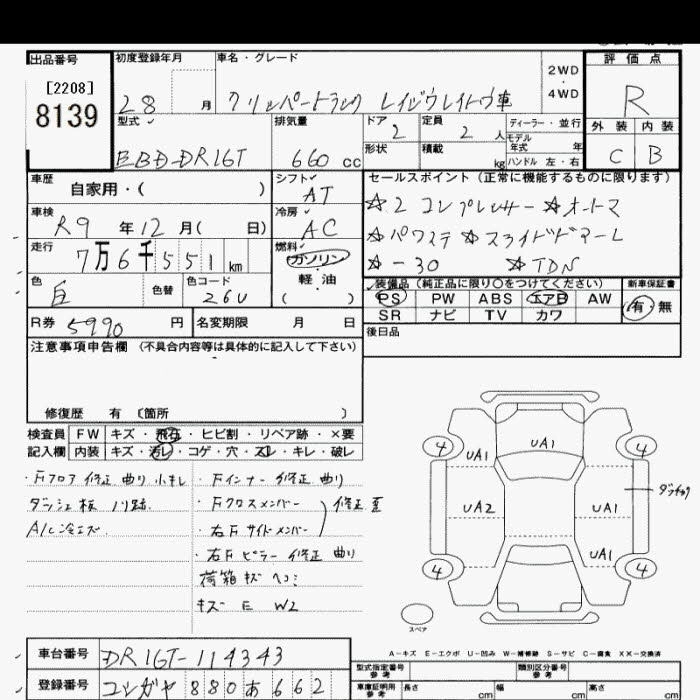 出品番号
[2208]
8139
初度登録年月
28 月
車名・グレード
クリッパートラック レイゾウレイトウ車
2WD
・
4WD
評価点
R
外装 内装
C B
型式
EBD-DR16T
排気量
660 cc
ドア
2
定員
2 人
形状
積載
kg
ディーラー・並行
モデル年式 年
ハンドル 左・右
車歴
自家用・( )
シフト
AT
車検
R9 年 12 月( 日)
冷房
AC
走行
7万6千551 km
燃料
ガソリン
軽・油
( )
色
白
色替
色コード
26U
セールスポイント(正常に機能するものに限ります)
☆2コンプレッサー ☆オートマ
☆パワステ ☆スライドドアール
☆-30 ☆TDN
装備品(純正品に限り〇をつけてください)
PS PW ABS エアB AW
SR ナビ TV カワ
新車保証書
有・無
R券 5990 円
名変期限 月 日
後日品
注意事項申告欄(不具合内容等は具体的に記入して下さい)
修復歴 有 〔箇所 〕
検査員 FW キズ・飛石・ヒビ割・リペア跡・×要
記入欄 内装 キズ・汚レ・コゲ・穴・スレ・キレ・破レ
・Fフロア修正曲り小キレ
ダッシュ板 ノリ跡
A/C冷エズ
・Fインナー修正曲り
・Fクロスメンバー
・右Fサイドメンバー
修正歪
・右Fピラー修正曲り
荷箱キズヘコミ
キズ E W2
4 UA1 UA1 4
UA2 UA1
UA1
4 4
スペア
A-キズ E-エクボ U-凹み W-補修跡 S-サビ C-腐食 XX-交換済
車台番号
DR16T-114343
登録番号
880あ662
型式指定番号
参考
類別区分番号
参考
車庫証明用
参考
長さ cm
幅 cm
高さ cm